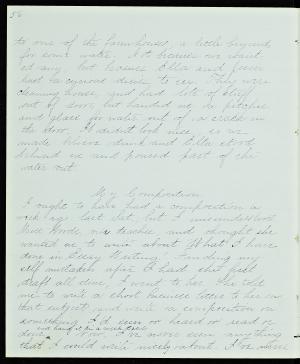 56
to one of the farmhouses, a little beyond,
for some water. Not because we want-
ed any but because Ella and Jessie
had to have a drink They were
cleaning house, and had lots of stuff
out of door, but handed us a pitcher
and glass for water out of a crack in
the door. It didn't look nice, so we
made drink and Ella stood
behind us and poured part of the
water out.
My Composition
I ought to have had a composition a
week ago last but, but I misunderstood
Miss Woods, my teacher, and thought she
wanted me to write about "What I have
done in Essay Writing". Finding my-
self mistaken after I had the first
draft all done, I went to her. She told
me to write a short business letter to her on
that subject, and write a composition on
something I'd seen or heard or read or
done and hand it in a week later
I've never seen anything
that I could write nicely about. I've never